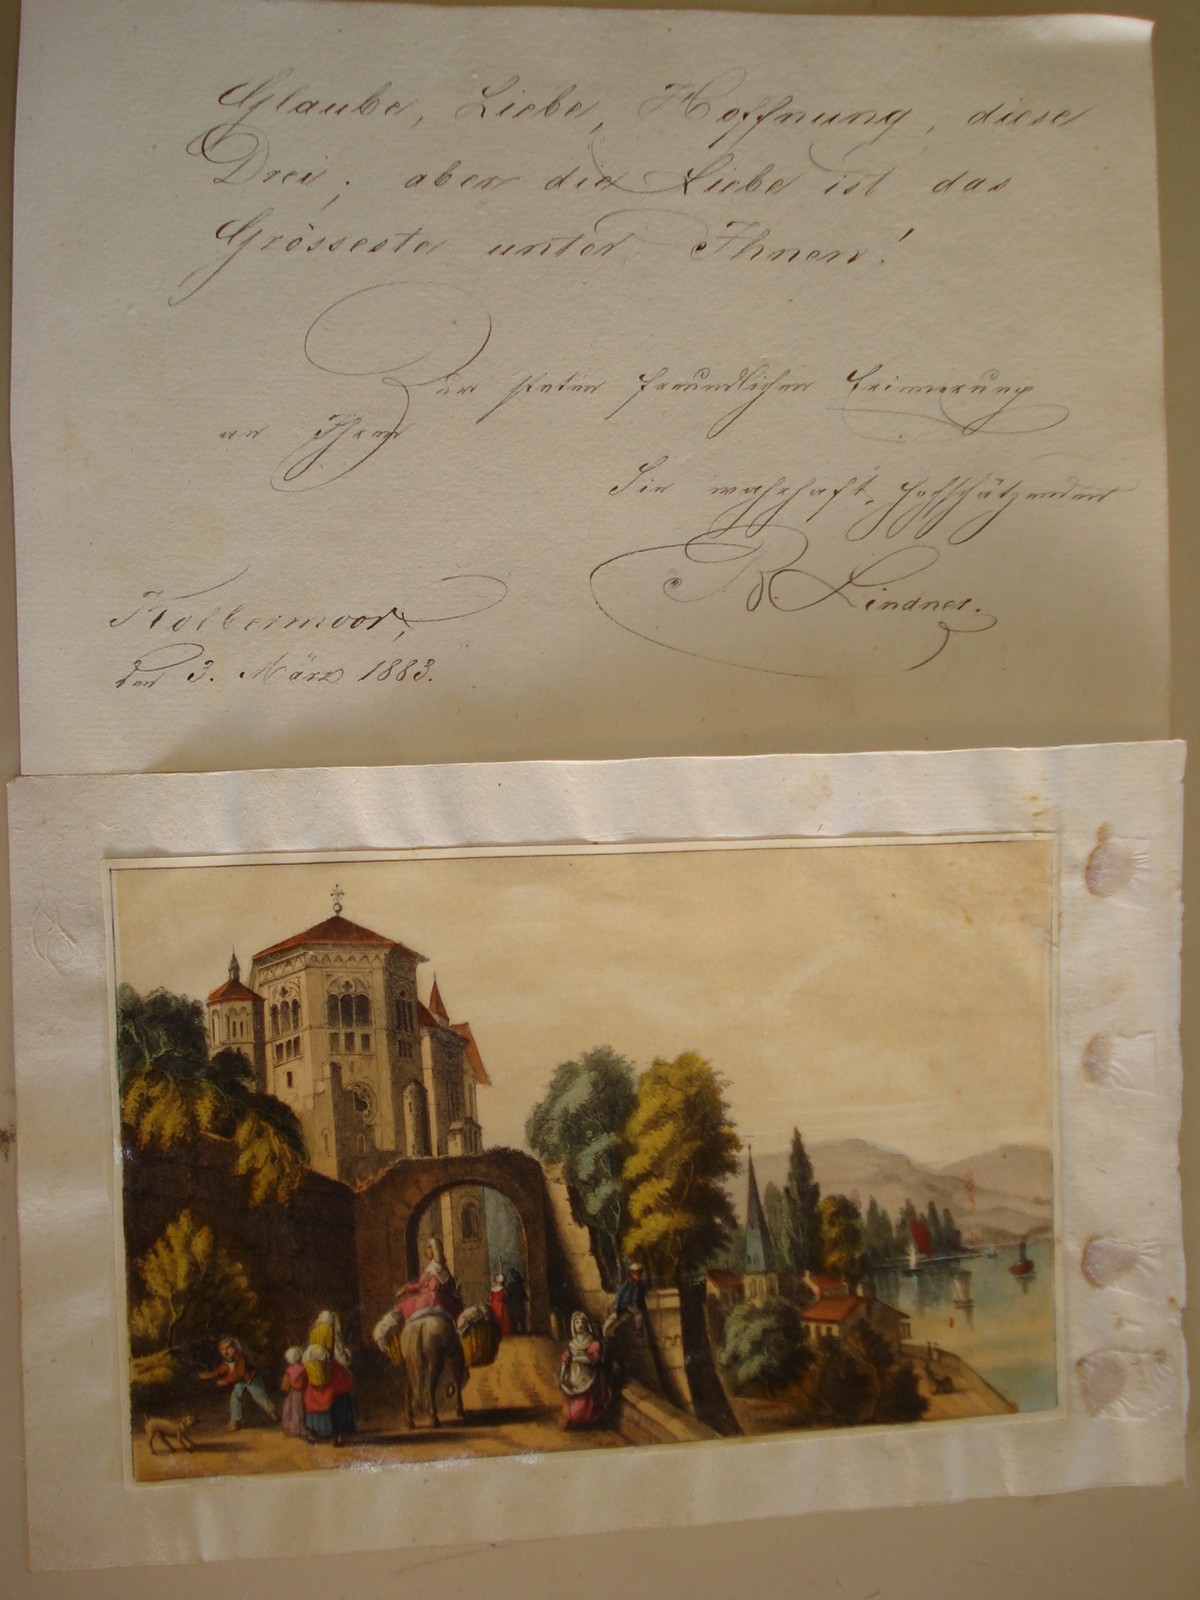 Glaube, Liebe, Hoffnung, diese
Drei; aber die Liebe ist das
Grösseste unter Ihnen!
Zur steten freundlichen Erinnerung
an Ihren
Sie wahrhaft hochschätzenden
B. Lindner.
Kolbermoor,
den 3. März 1883.